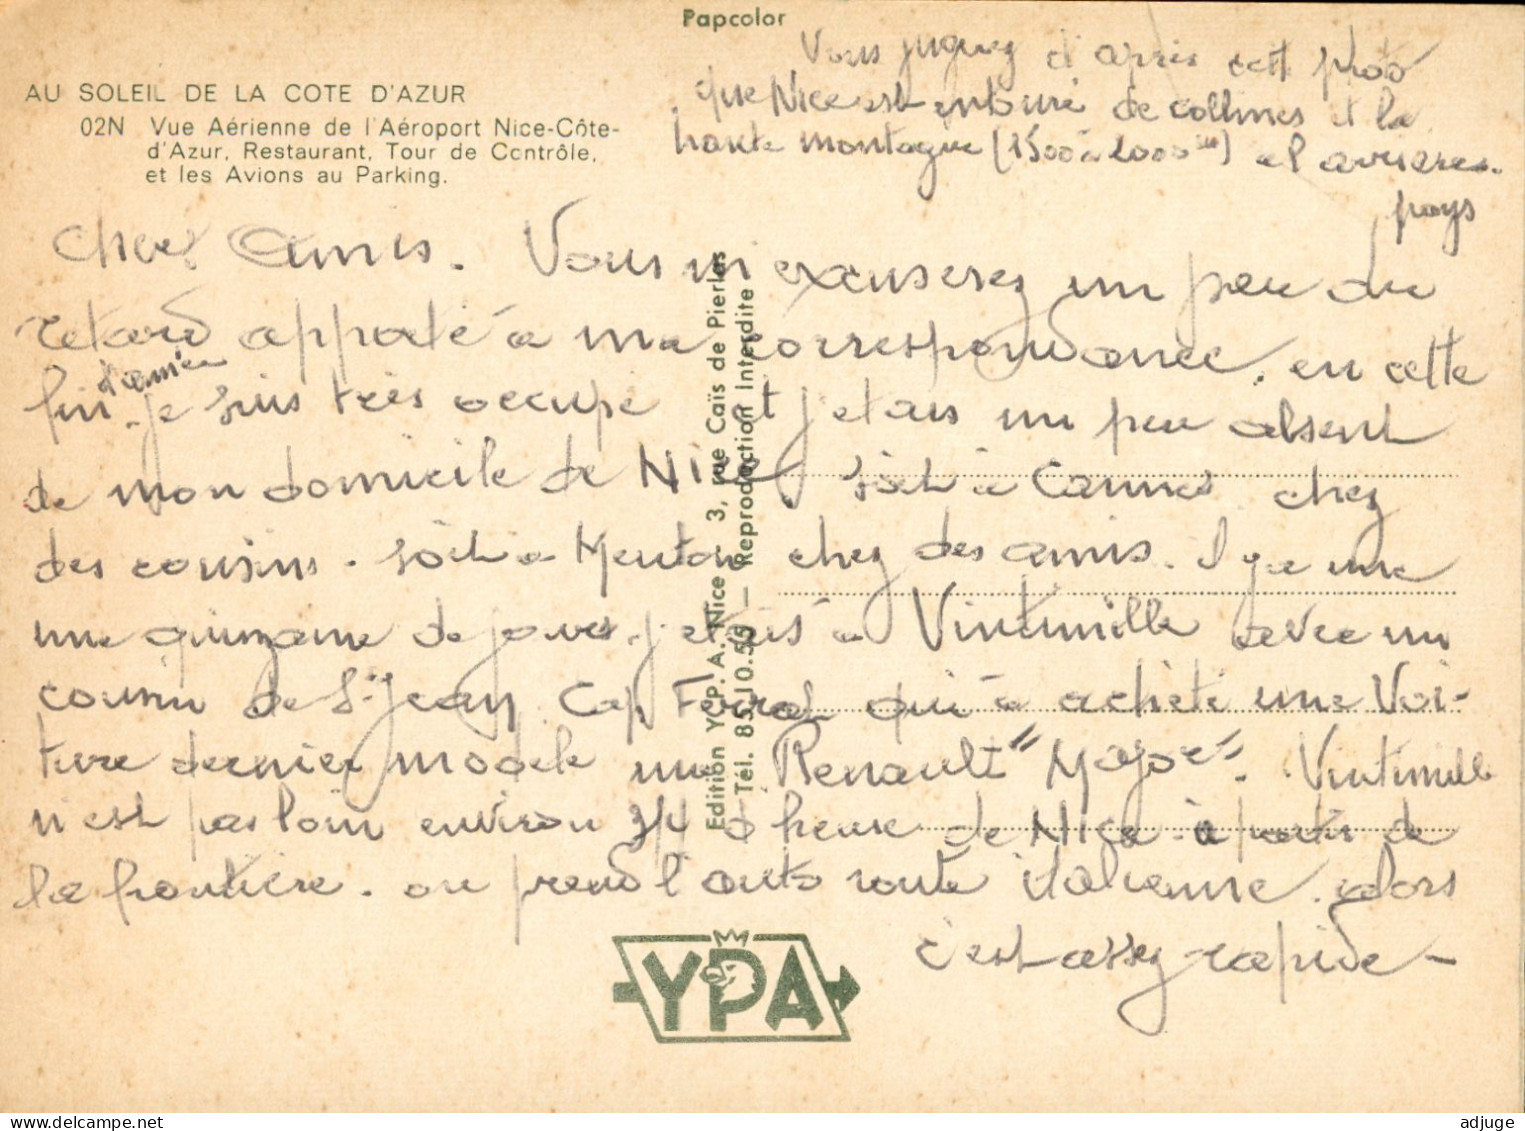 Papcolor
Vous jugez d'après cett photo
que Nice est entouré de collines et la
haute montagne (1500 à 2000 m)
pays
AU SOLEIL DE LA COTE D'AZUR
02N Vue Aérienne de l'Aéroport Nice-Côte-
d'Azur, Restaurant, Tour de Contrôle,
et les Avions au Parking.
Cher Amis. Vous m'excuserez un peu du
retard apporté à ma correspondance. en cette
fin d'année je suis très occupé et j'etais un peu absent
de mon domicile de Nice, soit à Cannes chez
des cousins. soit à Menton chez des amis. il y a une
une quinzaine de jours. j'etais à Vintimille avec un
cousin de St Jean Cap Ferrat qui à acheté une Voi-
ture dernier modele une Renault "Major". Vintimille
n'est pas loin environ 3/4 d'heure de Nice. à partir de
la frontière. on prend l'auto route italienne. alors
c'est assez rapide -
Edition YCP. A. Nice - 3, rue Caïs de Pierlas
Tél. 85.10.59 — Reproduction Interdite
YPA
adjuge